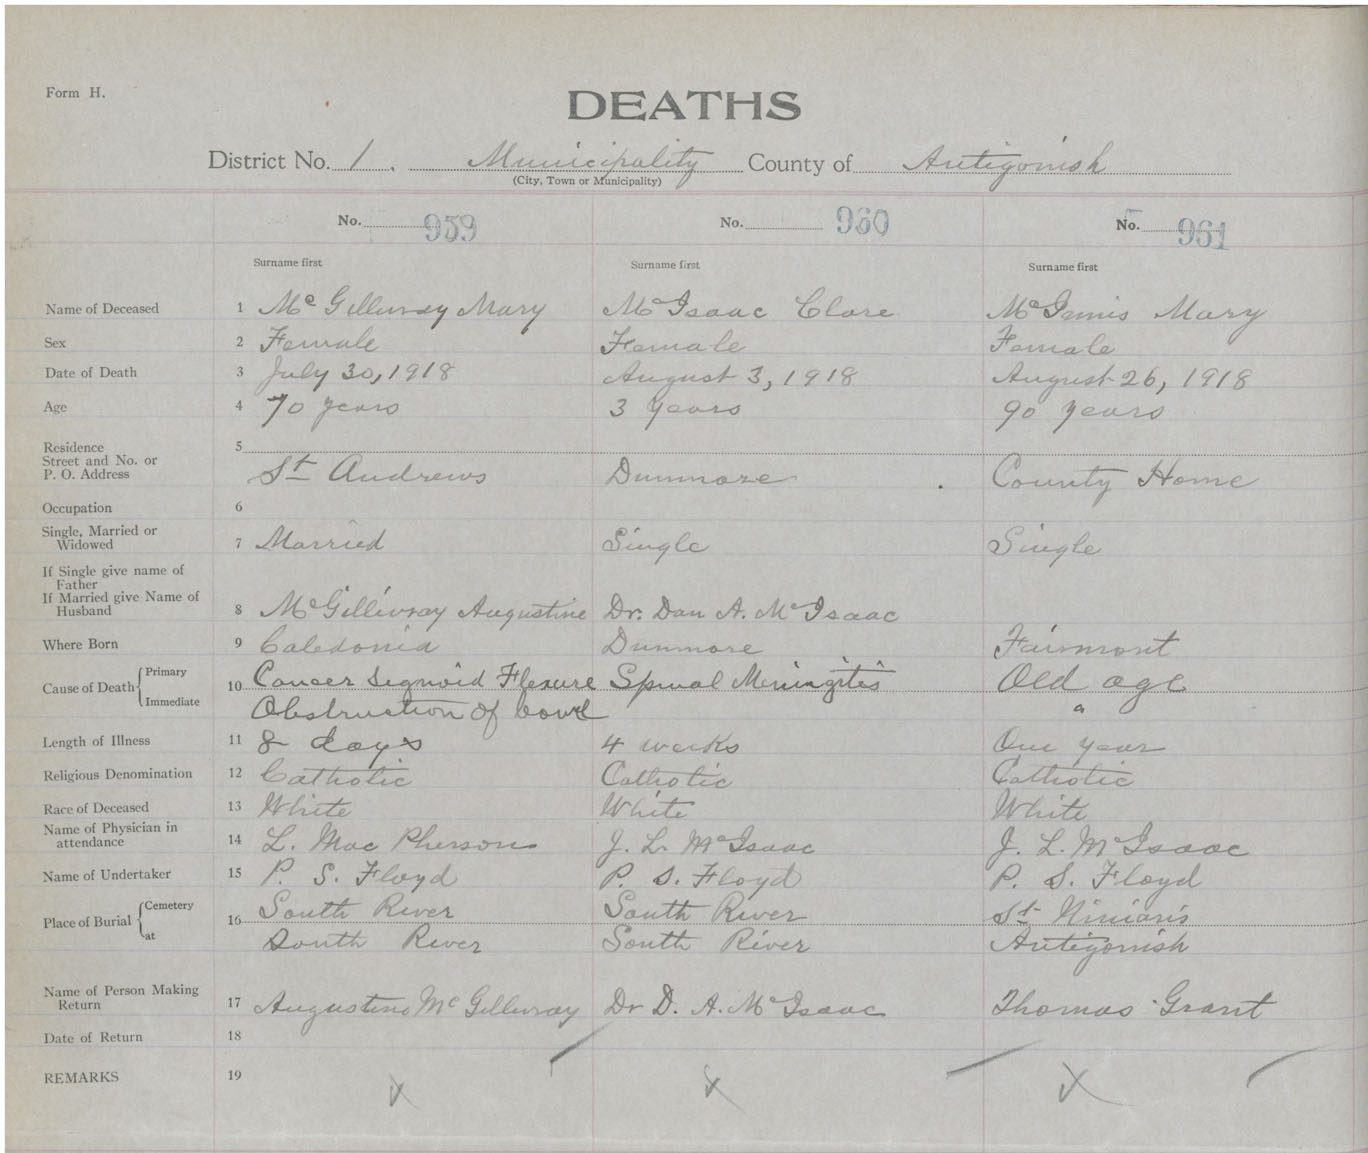 Form H.
DEATHS
District No. 1. Municipality County of Antigonish
(City, Town or Municipality)
No. 959 No. 960 No. 961
Surname first Surname first Surname first
Name of Deceased 1 McGillivray Mary McIsaac Clare McInnis Mary
Sex 2 Female Female Female
Date of Death 3 July 30, 1918 August 3, 1918 August 26, 1918
Age 4 70 years 3 Years 90 years
Residence 5
Street and No. or
P. O. Address St Andrews Dunmore County Home
Occupation 6
Single, Married or
Widowed 7 Married Single Single
If Single give name of
Father
If Married give Name of
Husband 8 McGillivray Augustine Dr. Dan A. McIsaac
Where Born 9 Caledonia Dunmore Fairmont
Cause of Death Primary 10 Cancer Sigmoid Flexure Spinal Meningitis Old age
Immediate Obstruction of bowel
Length of Illness 11 8 days 4 weeks One year
Religious Denomination 12 Catholic Catholic Catholic
Race of Deceased 13 White White White
Name of Physician in
attendance 14 L. MacPherson J. L. McIsaac J. L. McIsaac
Name of Undertaker 15 P. S. Floyd P. S. Floyd P. S. Floyd
Place of Burial Cemetery 16 South River South River St Ninian's
at South River South River Antigonish
Name of Person Making
Return 17 Augustine McGillivray Dr D. A. McIsaac Thomas Grant
Date of Return 18
REMARKS 19